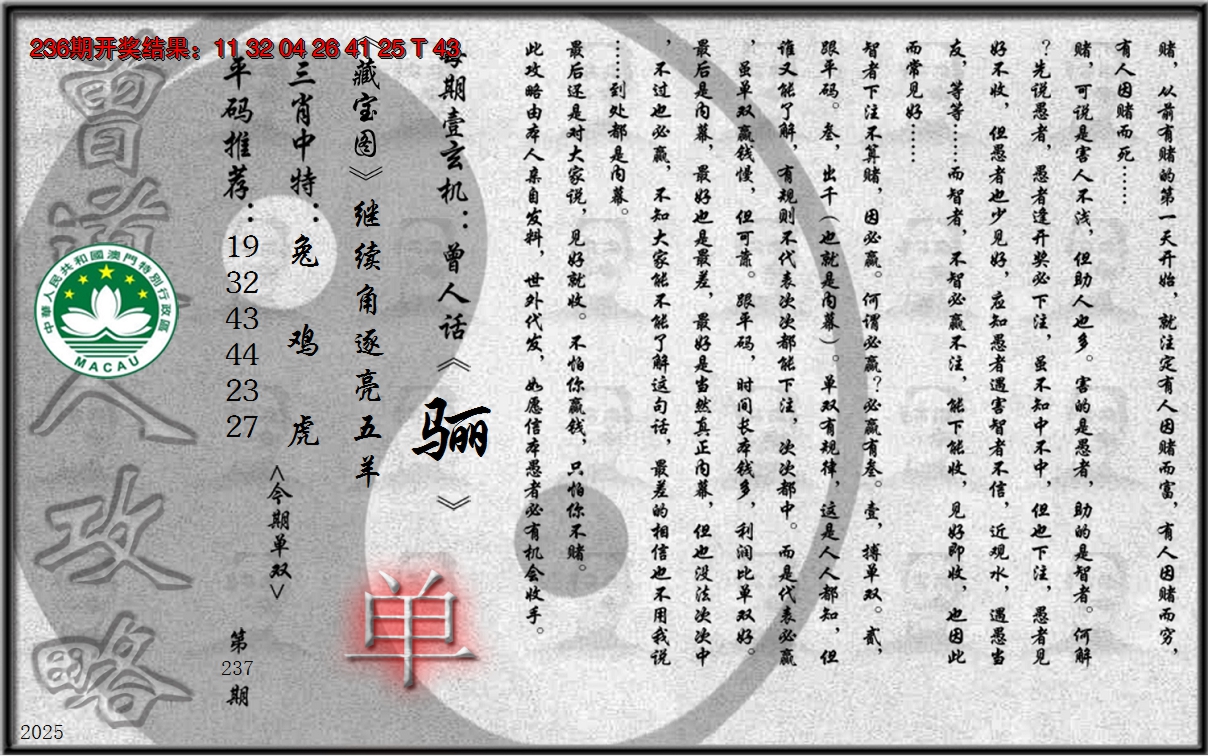 236期开奖结果：11 32 04 26 41 25 T 43
赌，从前有赌的第一天开始，就注定有人因赌而富，有人因赌而穷，
有人因赌而死……
赌，可说是害人不浅，但助人也多。害的是愚者，助的是智者。何解
？先说愚者，愚者逢开奖必下注，虽不知中不中，但也下注，愚者见
好不收，但愚者也少见好，应知愚者遇害智者不信，近观水，遇愚当
友，等等……而智者，不智必赢不注，能下能收，见好即收，也因此
而常见好……
智者下注不算赌，因必赢。何谓必赢？必赢有叁。壹，搏单双。贰，
跟平码。叁，出千（也就是内幕）。单双有规律，这是人人都知，但
谁又能了解，有规则不代表次次都能下注，次次都中。而是代表必赢
，虽单双赢钱慢，但可靠。跟平码，时间长本钱多，利润比单双好。
最后是内幕，最好也是最差，最好是当然真正内幕，但也没法次次中
，不过也必赢，不知大家能不能了解这句话，最差的相信也不用我说
……到处都是内幕。
最后还是对大家说，见好就收。不怕你赢钱，只怕你不赌。
此攻略由本人亲自发料，世外代发，如愿信本愚者必有机会收手。
每期壹玄机：曾人话《骊》
《藏宝图》继续角逐亮五羊
三肖中特：兔 鸡 虎
<今期单双>
单
平码推荐：19 32 43 44 23 27
第237期
曾道人攻略
中華人民共和國澳門特別行政區
MACAU
2025